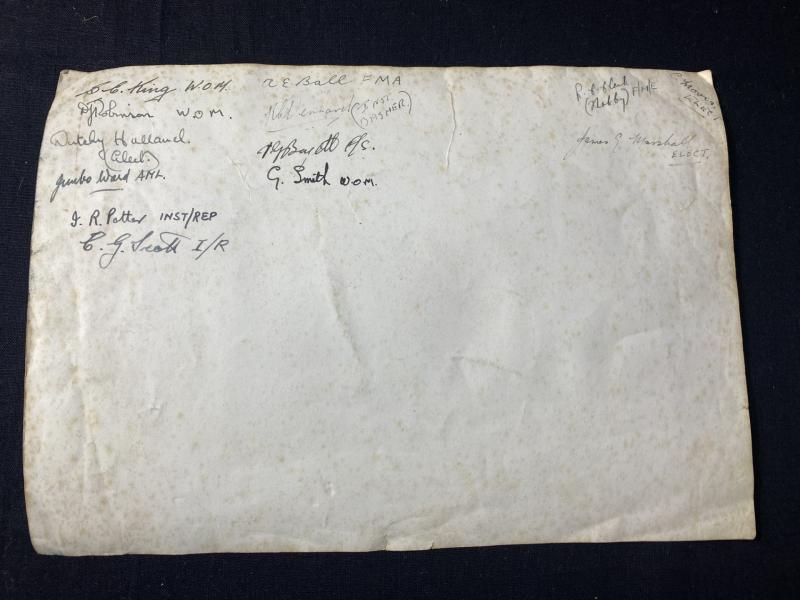 S. C. King W.O.M.
D J Robinson W.O.M.
Dutchy Holland.
(Elect.)
Jumbo Ward AML.
J. R. Potter INST/REP
C. G. Scott I/R
A E Ball FMA
(INST
BASHER)
G. Smith W.O.M.
(Nobby)
James G. Marshall
ELECT.
Elect